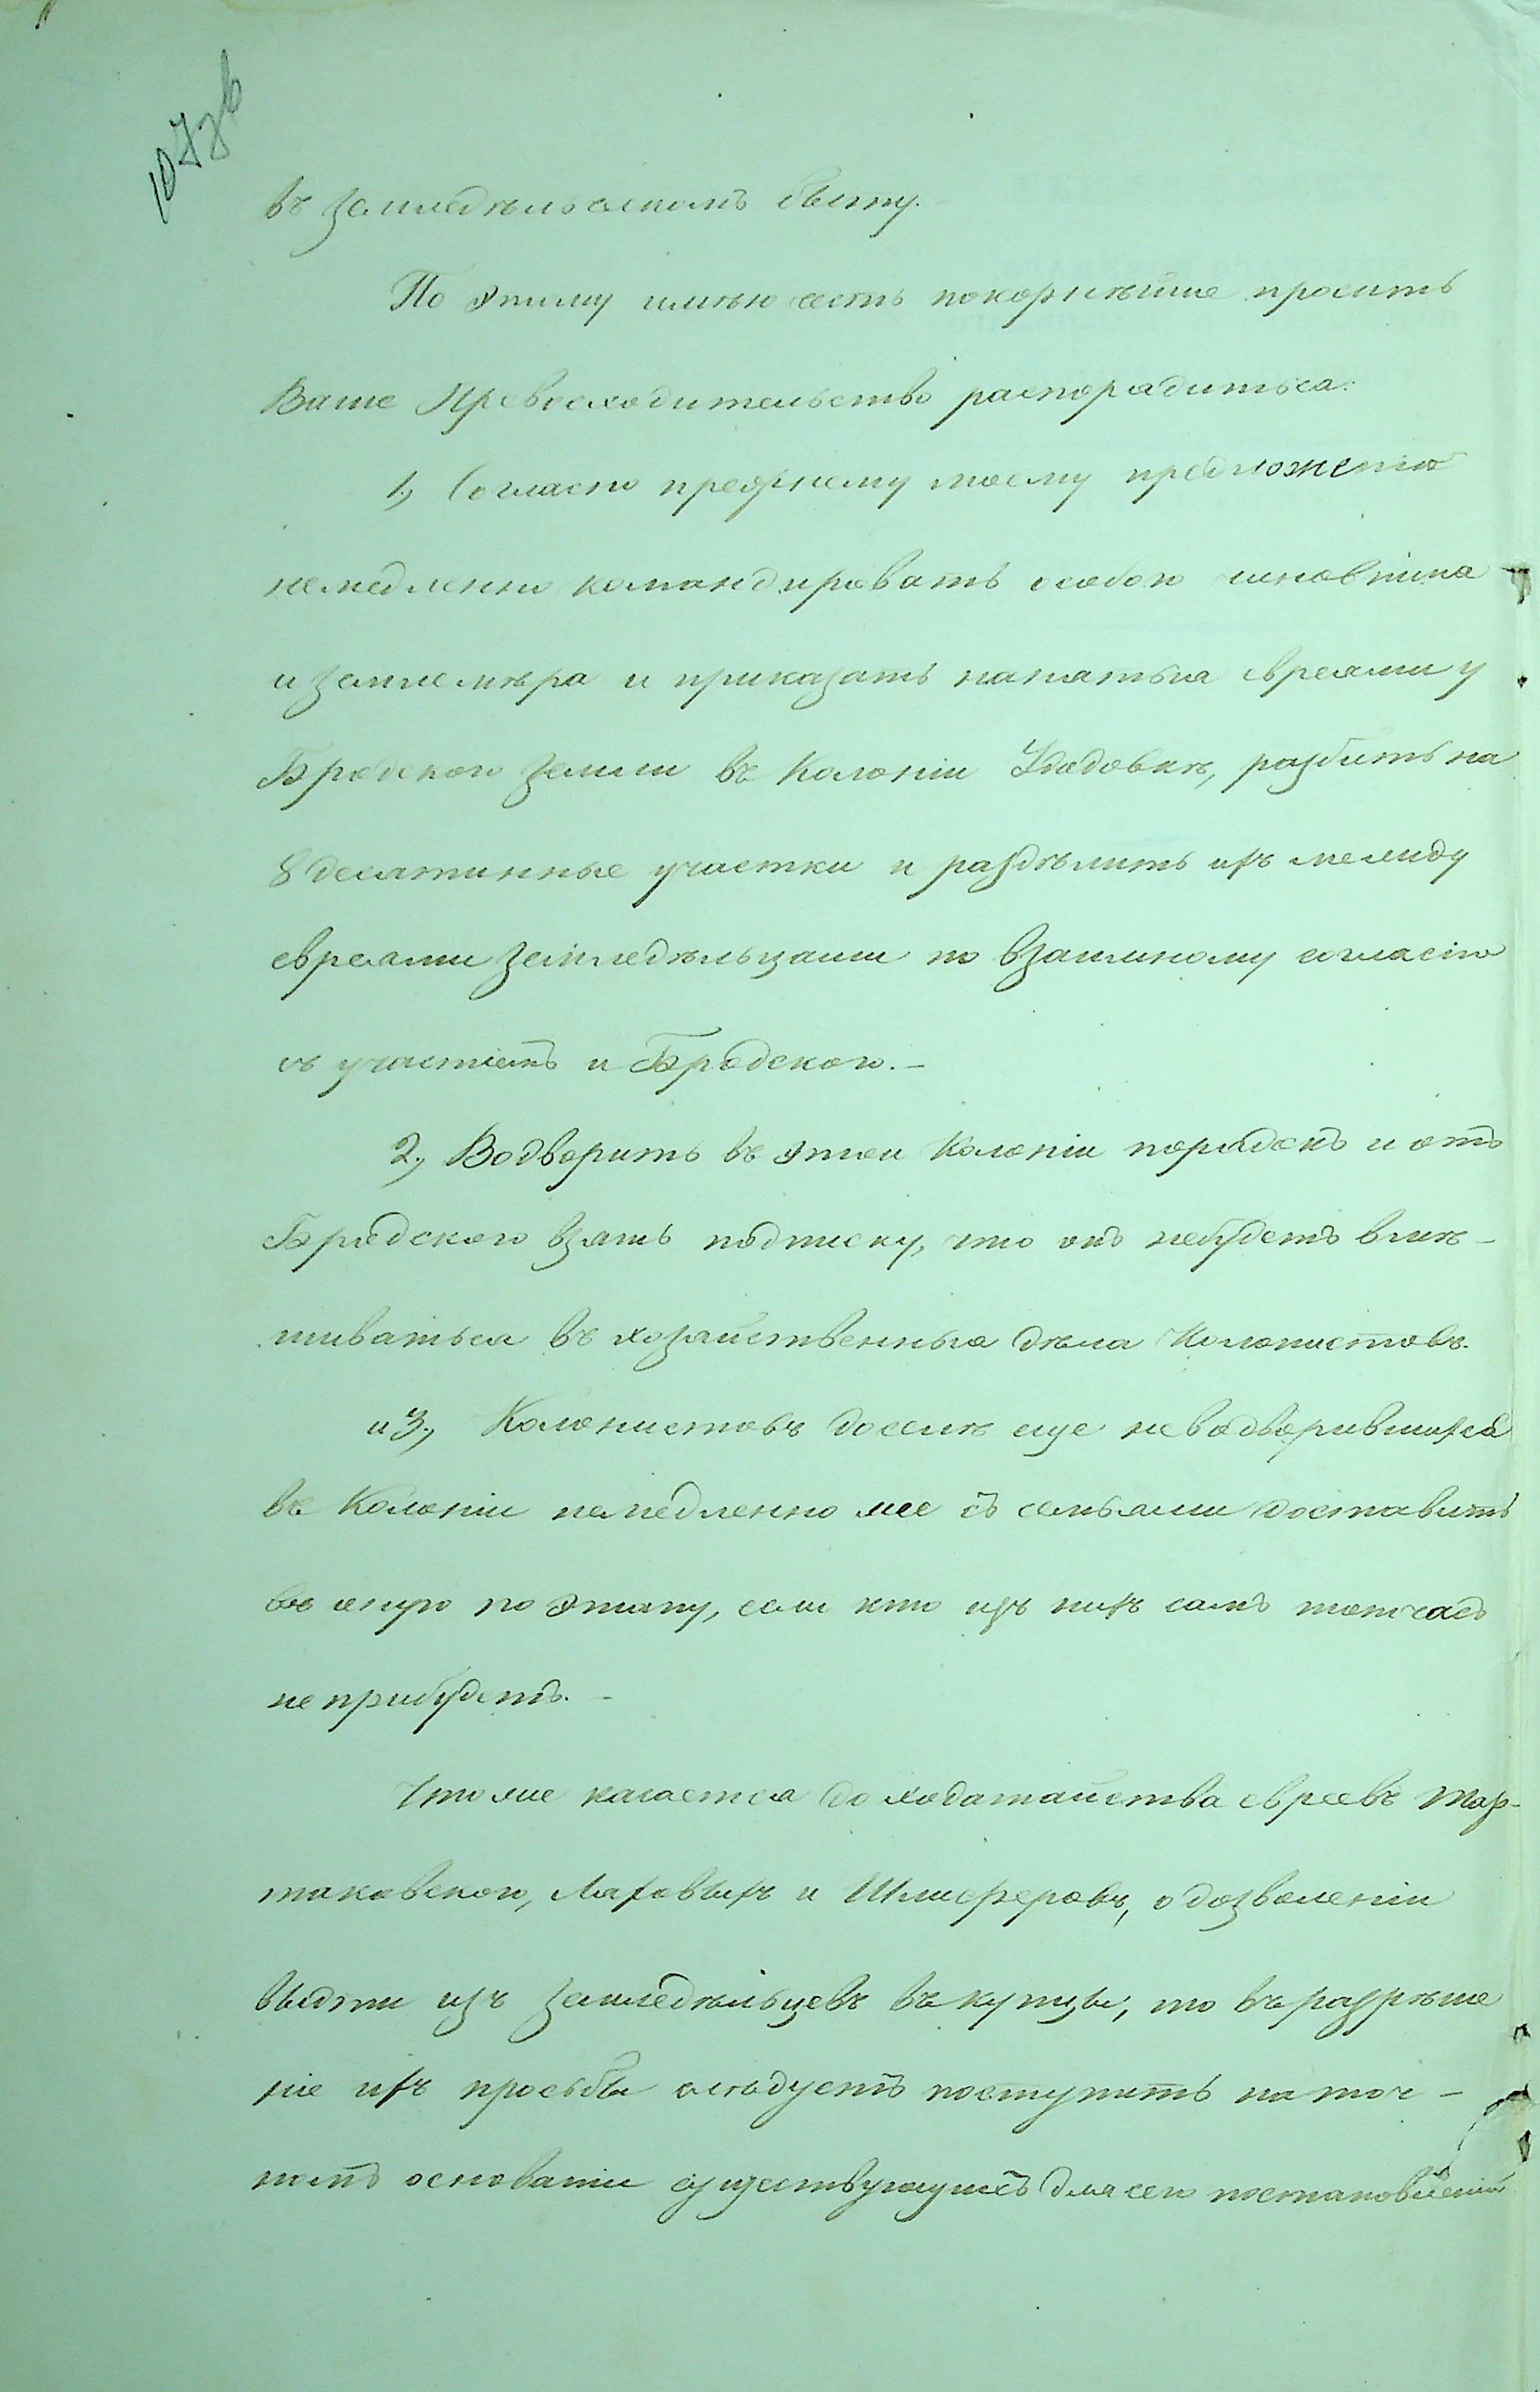 107 зв
въ земледѣльческомъ быту.
По этому имѣю честь покорнѣйше просить
Ваше Превосходительство распорядиться:
1., Согласно прежнему моему предложенію
немедленно командировать особого чиновника
и землемѣра и приказать нанятыя евреями у
Бродского земли въ Колоніи разбить на
8 десятинные участки и раздѣлить ихъ между
евреями земледѣльцами по взаимному согласію
съ участіемъ и Бродского. –
2., Водворить въ этой Колоніи порядокъ и отъ
Бродского взять подписку, что онъ небудетъ вмѣ–
шиваться въ хозяйственныя дѣла Колонистовъ.
и 3., Колонистовъ доселѣ еще неводворившихся
въ Колоніи немедленно же съ семьями доставить
въ оную по этапу, если кто изъ нихъ самъ тотчасъ
не прибудетъ. –
Что же касается до ходатайства евреевъ Тар–
таковского, Ляховыхъ и Шлиферовъ, о дозволеніи
выдти изъ земледѣльцевъ въ купцы, то въ разрѣше
ніе ихъ просьбы слѣдуетъ поступить на точ–
номъ основаніи существующихъ для сего постановленій